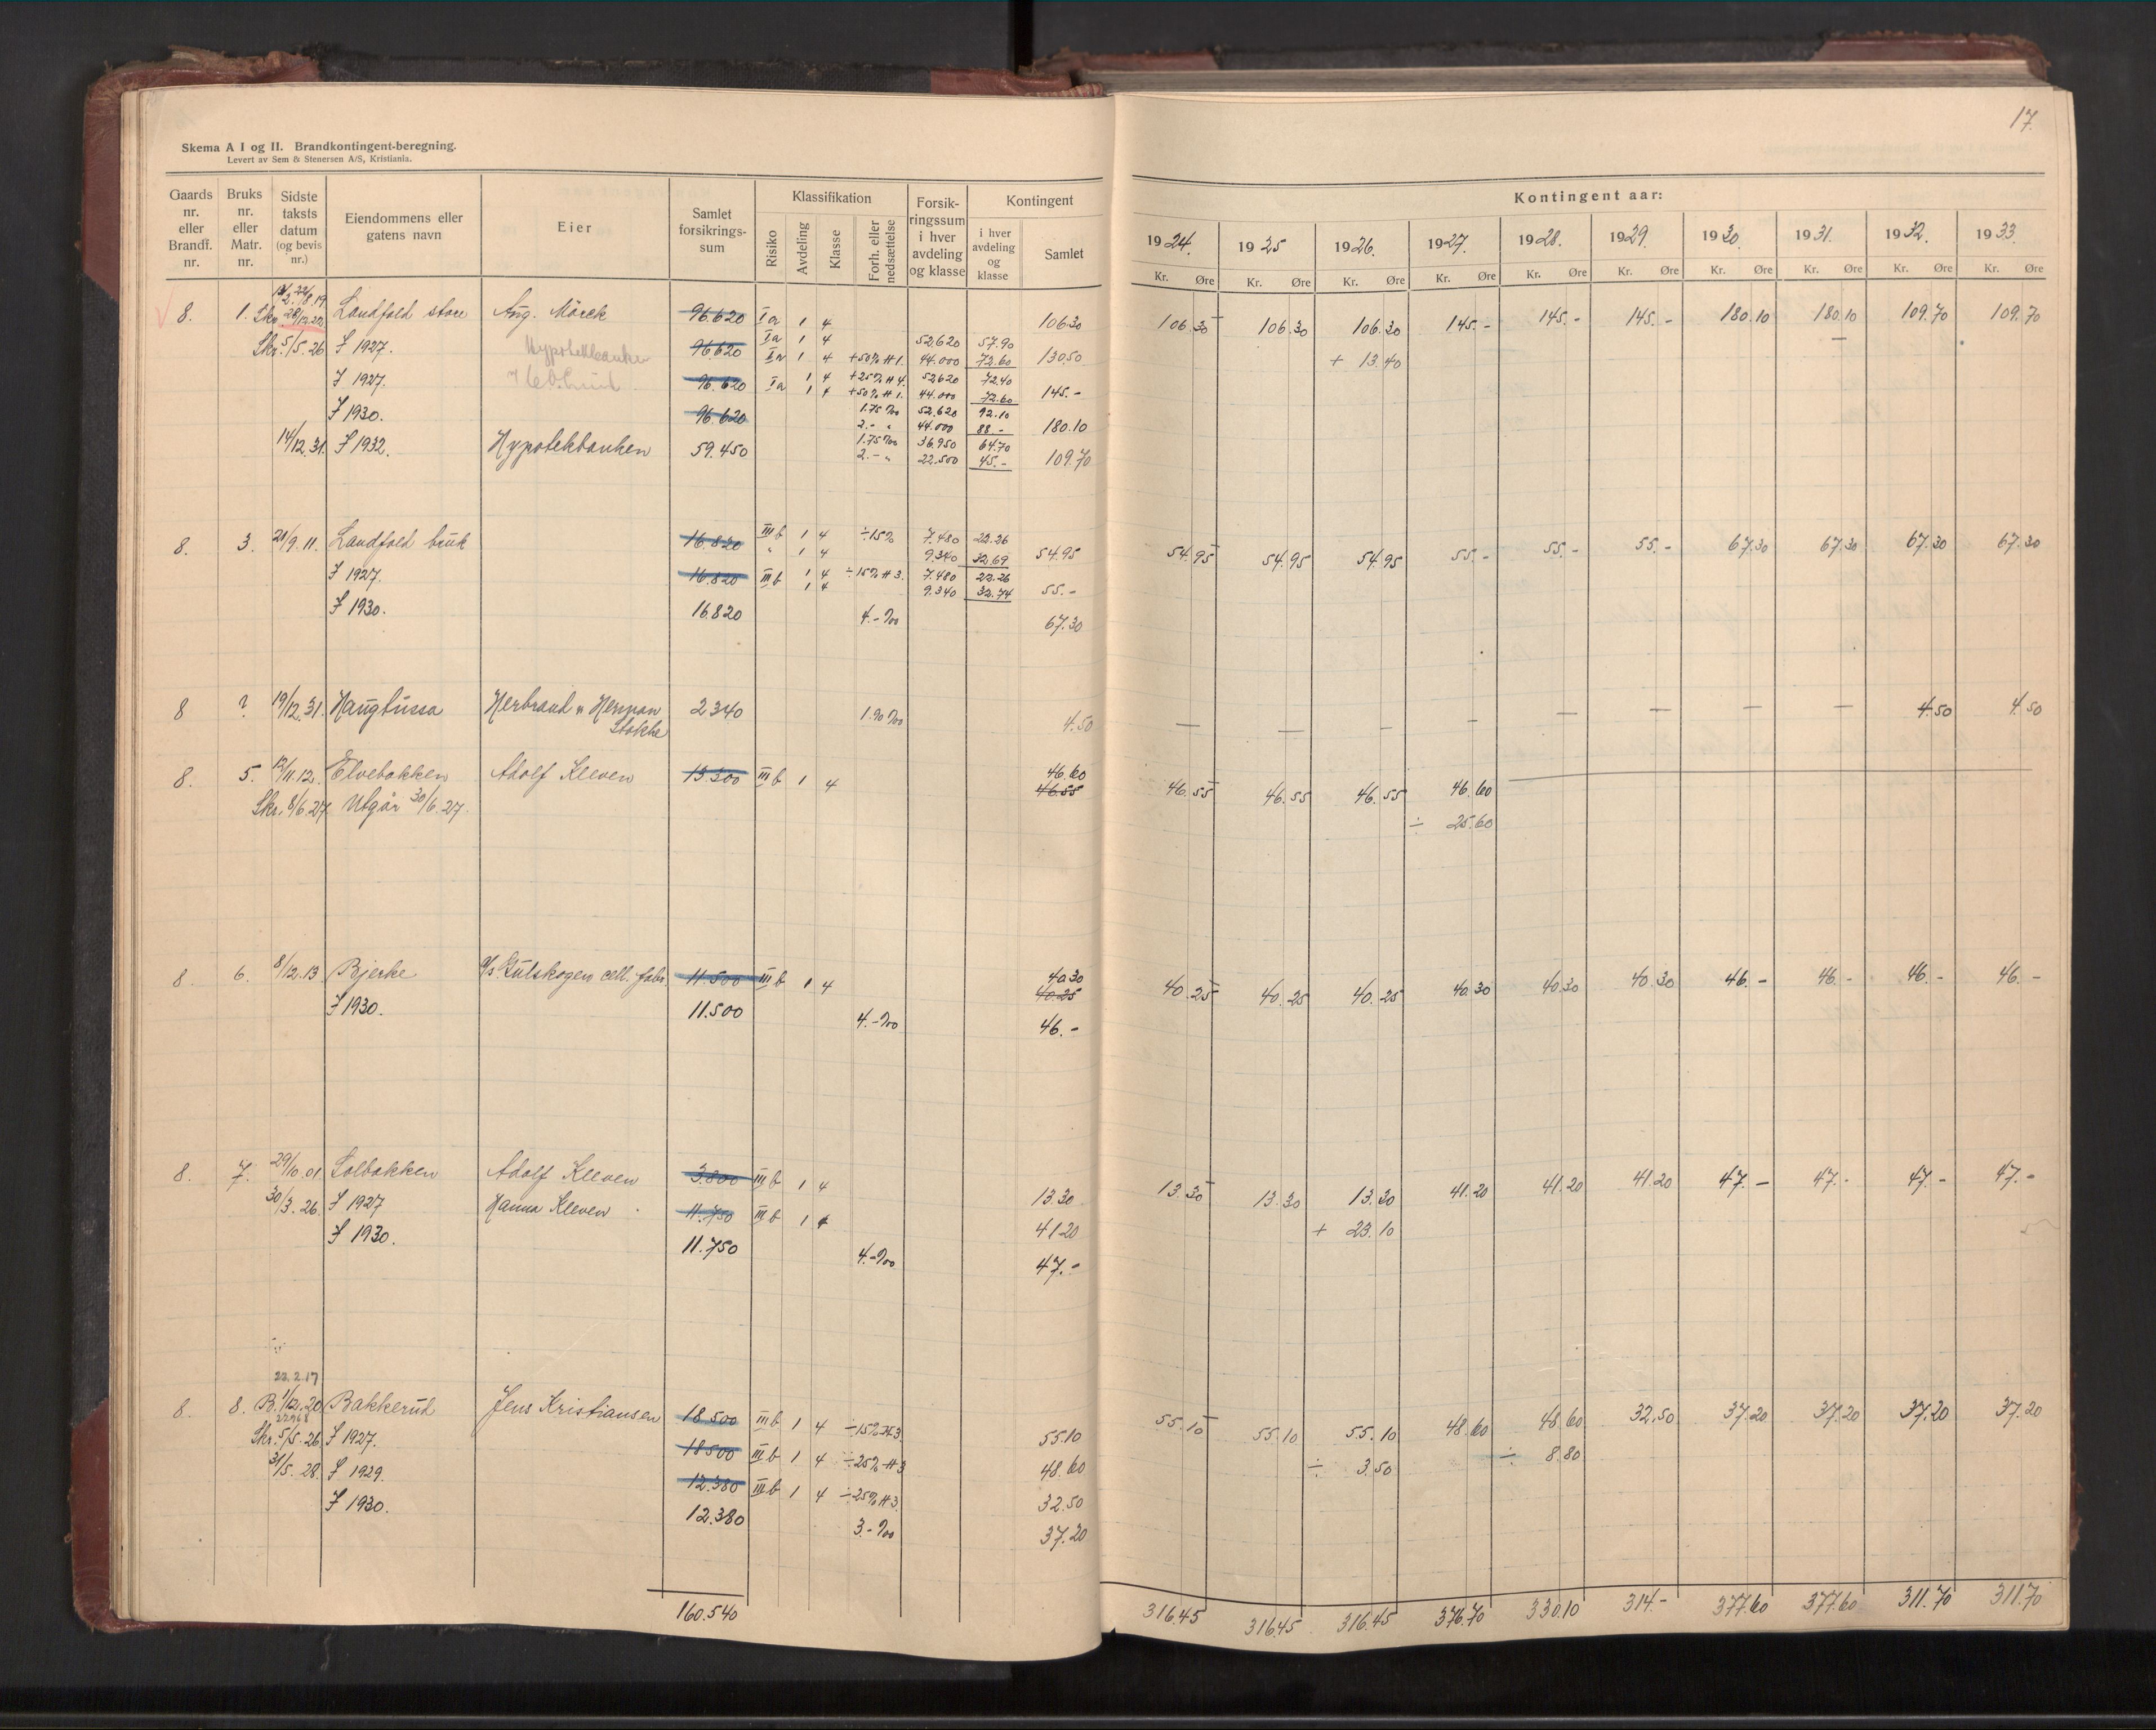 17.
Skema A I og II. Brandkontingent-beregning.
Levert av Sem & Stenersen A/S, Kristiania.
Gaards nr. eller Brandf. nr. | Bruks nr. eller Matr. nr. | Sidste taksts datum (og bevis nr.) | Eiendommens eller gatens navn | Eier | Samlet forsikrings-sum | Klassifikation | Risiko | Avdeling | Klasse | Forh. eller nedsættelse | Forsik-ringssum i hver avdeling og klasse | Kontingent | i hver avdeling og klasse | Samlet
Kontingent aar:
1924. | 1925 | 1926. | 1927. | 1928. | 1929. | 1930. | 1931. | 1932. | 1933.
Kr. Øre | Kr. Øre | Kr. Øre | Kr. Øre | Kr. Øre | Kr. Øre | Kr. Øre | Kr. Øre | Kr. Øre | Kr. Øre
8. 1. Landfald store Aug. Mörck 96.620 Ia 1 4 106.30 | 106.30 106.30 106.30 145.- 145.- 145.- 180.10 180.10 109.70 109.70
Skr. 5/5.26 F 1927. Hypotekbanken 96.620 Ia 1 4 52.620 57.90
Ia 1 4 +50% H 1. 44.000 72.60 130.50 | + 13.40
F 1927. 96.620 Ia 1 4 +25% H 4. 52.620 72.40
1 4 +50% H 1. 44.000 72.60 145.-
F 1930. 96.620 1.75 ‰ 52.620 92.10
2.- " 44.000 88.- 180.10
14/12.31. F 1932. Hypotekbanken 59.450 1.75 ‰ 36.950 64.70
2.- " 22.500 45.- 109.70
8. 3. 21/9.11. Landfald bruk 16.820 IIIb 1 4 ÷15% 7.480 22.26
" 1 4 9.340 32.69 54.95 | 54.95 54.95 54.95 55.- 55.- 55.- 67.30 67.30 67.30 67.30
F 1927. 16.820 IIIb 1 4 ÷15% H 3. 7.480 22.26
1 4 9.340 32.74 55.-
F 1930. 16.820 4.-‰ 67.30
8 ? 19/12.31. Haugtussa Herbrand & Herman 2340 1.90 ‰ 4.50 | — — — — — — — — 4.50 4.50
Stokke
8. 5. 12/11.12. Elvebakken Adolf Kleven 13.300 IIIb 1 4 46.60
46.55 | 46.55 46.55 46.55 46.60
Skr. 8/6.27. Utgår 30/6.27. | ÷ 25.60
8 6. 8/12.13 Bjerke A/s Gulskogen cell. fabr. 11.500 IIIb 1 4 40.30
40.25 | 40.25 40.25 40.25 40.30 40.30 40.30 46.- 46.- 46.- 46.-
F 1930. 11.500 4.-‰ 46.-
8. 7. 29/10.01 Solbakken Adolf Kleven 3.800 IIIb 1 4 13.30 | 13.30 13.30 13.30 41.20 41.20 41.20 47.- 47.- 47.- 47.-
30/3.26. F 1927 Hanna Kleven 11.750 IIIb 1 4 41.20 | + 23.10
F 1930. 11.750 4.-‰ 47.-
22.2.17
8. 8. B. 1/12.20 Bakkerud Jens Kristiansen 18.500 IIIb 1 4 ÷15% H 3. 55.10 | 55.10 55.10 55.10 48.60 48.60 32.50 37.20 37.20 37.20 37.20
Skr. 5/5.26 F 1927. 18.500 IIIb 1 4 ÷25% H 3 48.60 | ÷ 3.50 ÷ 8.80
31/5.28. F 1929. 12.380 IIIb 1 4 ÷25% H 3. 32.50
F 1930. 12.380 3.-‰ 37.20
160.540 | 316.45 316.45 316.45 376.70 330.10 314.- 377.60 377.60 311.70 311.70